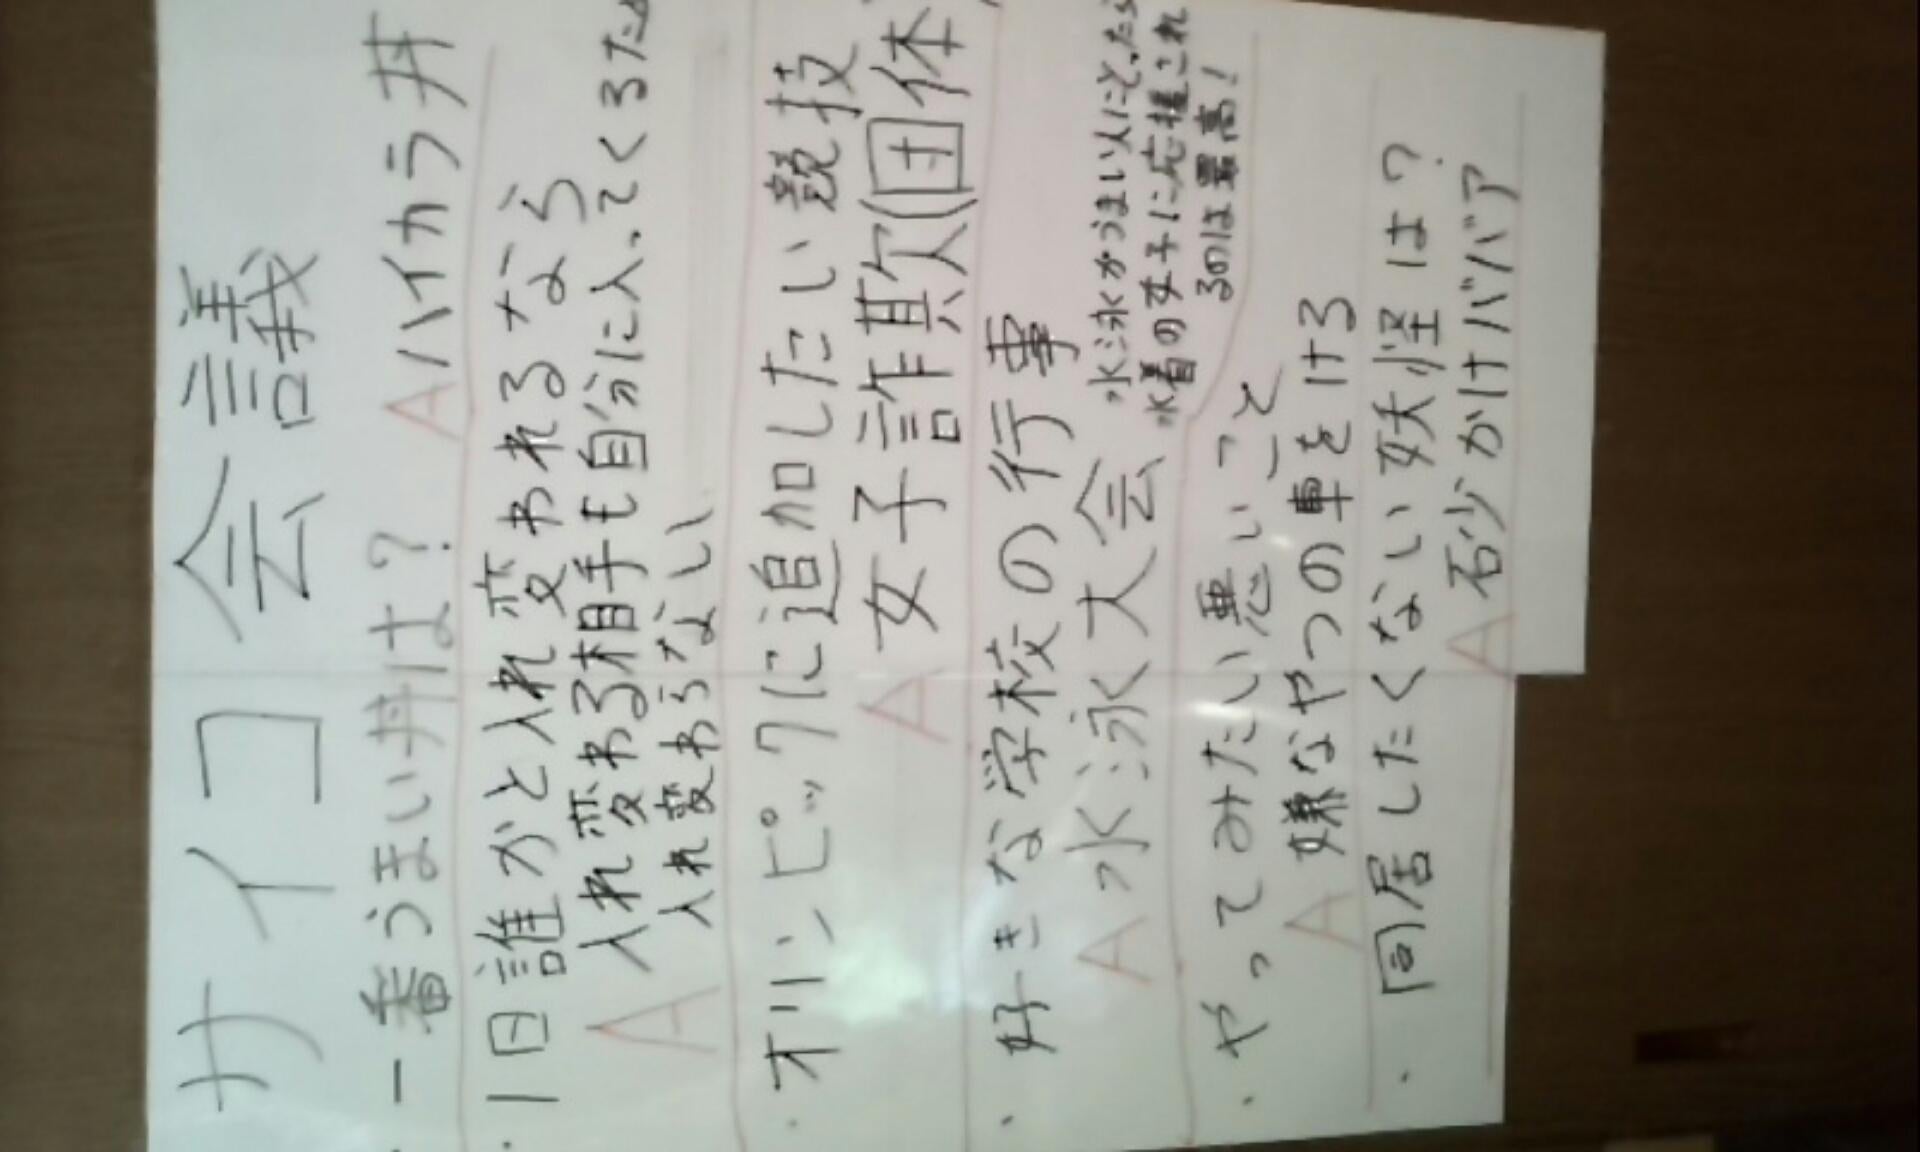 サイコ会議
・一番うまい丼は?
A ハイカラ丼
・1日誰かと入れ変われるなら
A 入れ変わる相手も自分に入ってくるため
入れ変わらない
・オリンピックに追加したい競技
A 女子詐欺(団体)
・好きな学校の行事
A 水泳大会
水泳がうまい人にとったら
水着の女子に応援され
るのは最高!
・やってみたい悪いこと
A 嫌なやつの車をける
・同居したくない妖怪は?
A 砂かけババア